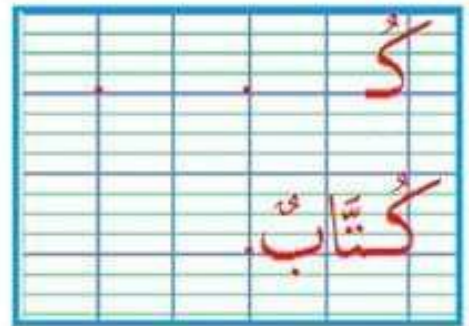 كُ . .
كُتَّابٌ .